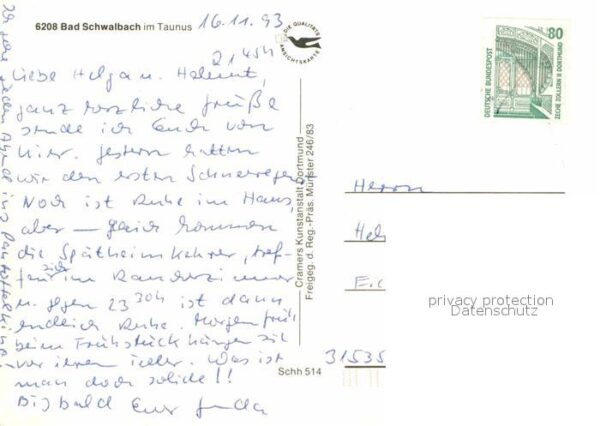 6208 Bad Schwalbach im Taunus
16.11.93
21 45h
DIE QUALITÄTS
ANSICHTSKARTE
Liebe Helga u. Helmut,
ganz herzliche Grüße
sende ich Euch von
hier. Gestern hatten
wir den ersten Schneeregen.
Noch ist Ruhe im Haus,
aber — gleich kommen
die Spätheimkehrer, tref-
fen sich im Raucherzimmer
u. gegen 23 30h ist dann
endlich Ruhe. Morgen früh
beim Frühstück hängen sie
vor ihren Teller. Was ist
man doch solide!!
Bis bald Eure
jeden Abend ins
Cramers Kunstanstalt Dortmund
Freigeg. d. Reg.-Präs. Münster 246/83
Schh 514
DEUTSCHE BUNDESPOST
80
ZECHE ZOLLERN II DORTMUND
Herrn
Hel
31535
privacy protection
Datenschutz